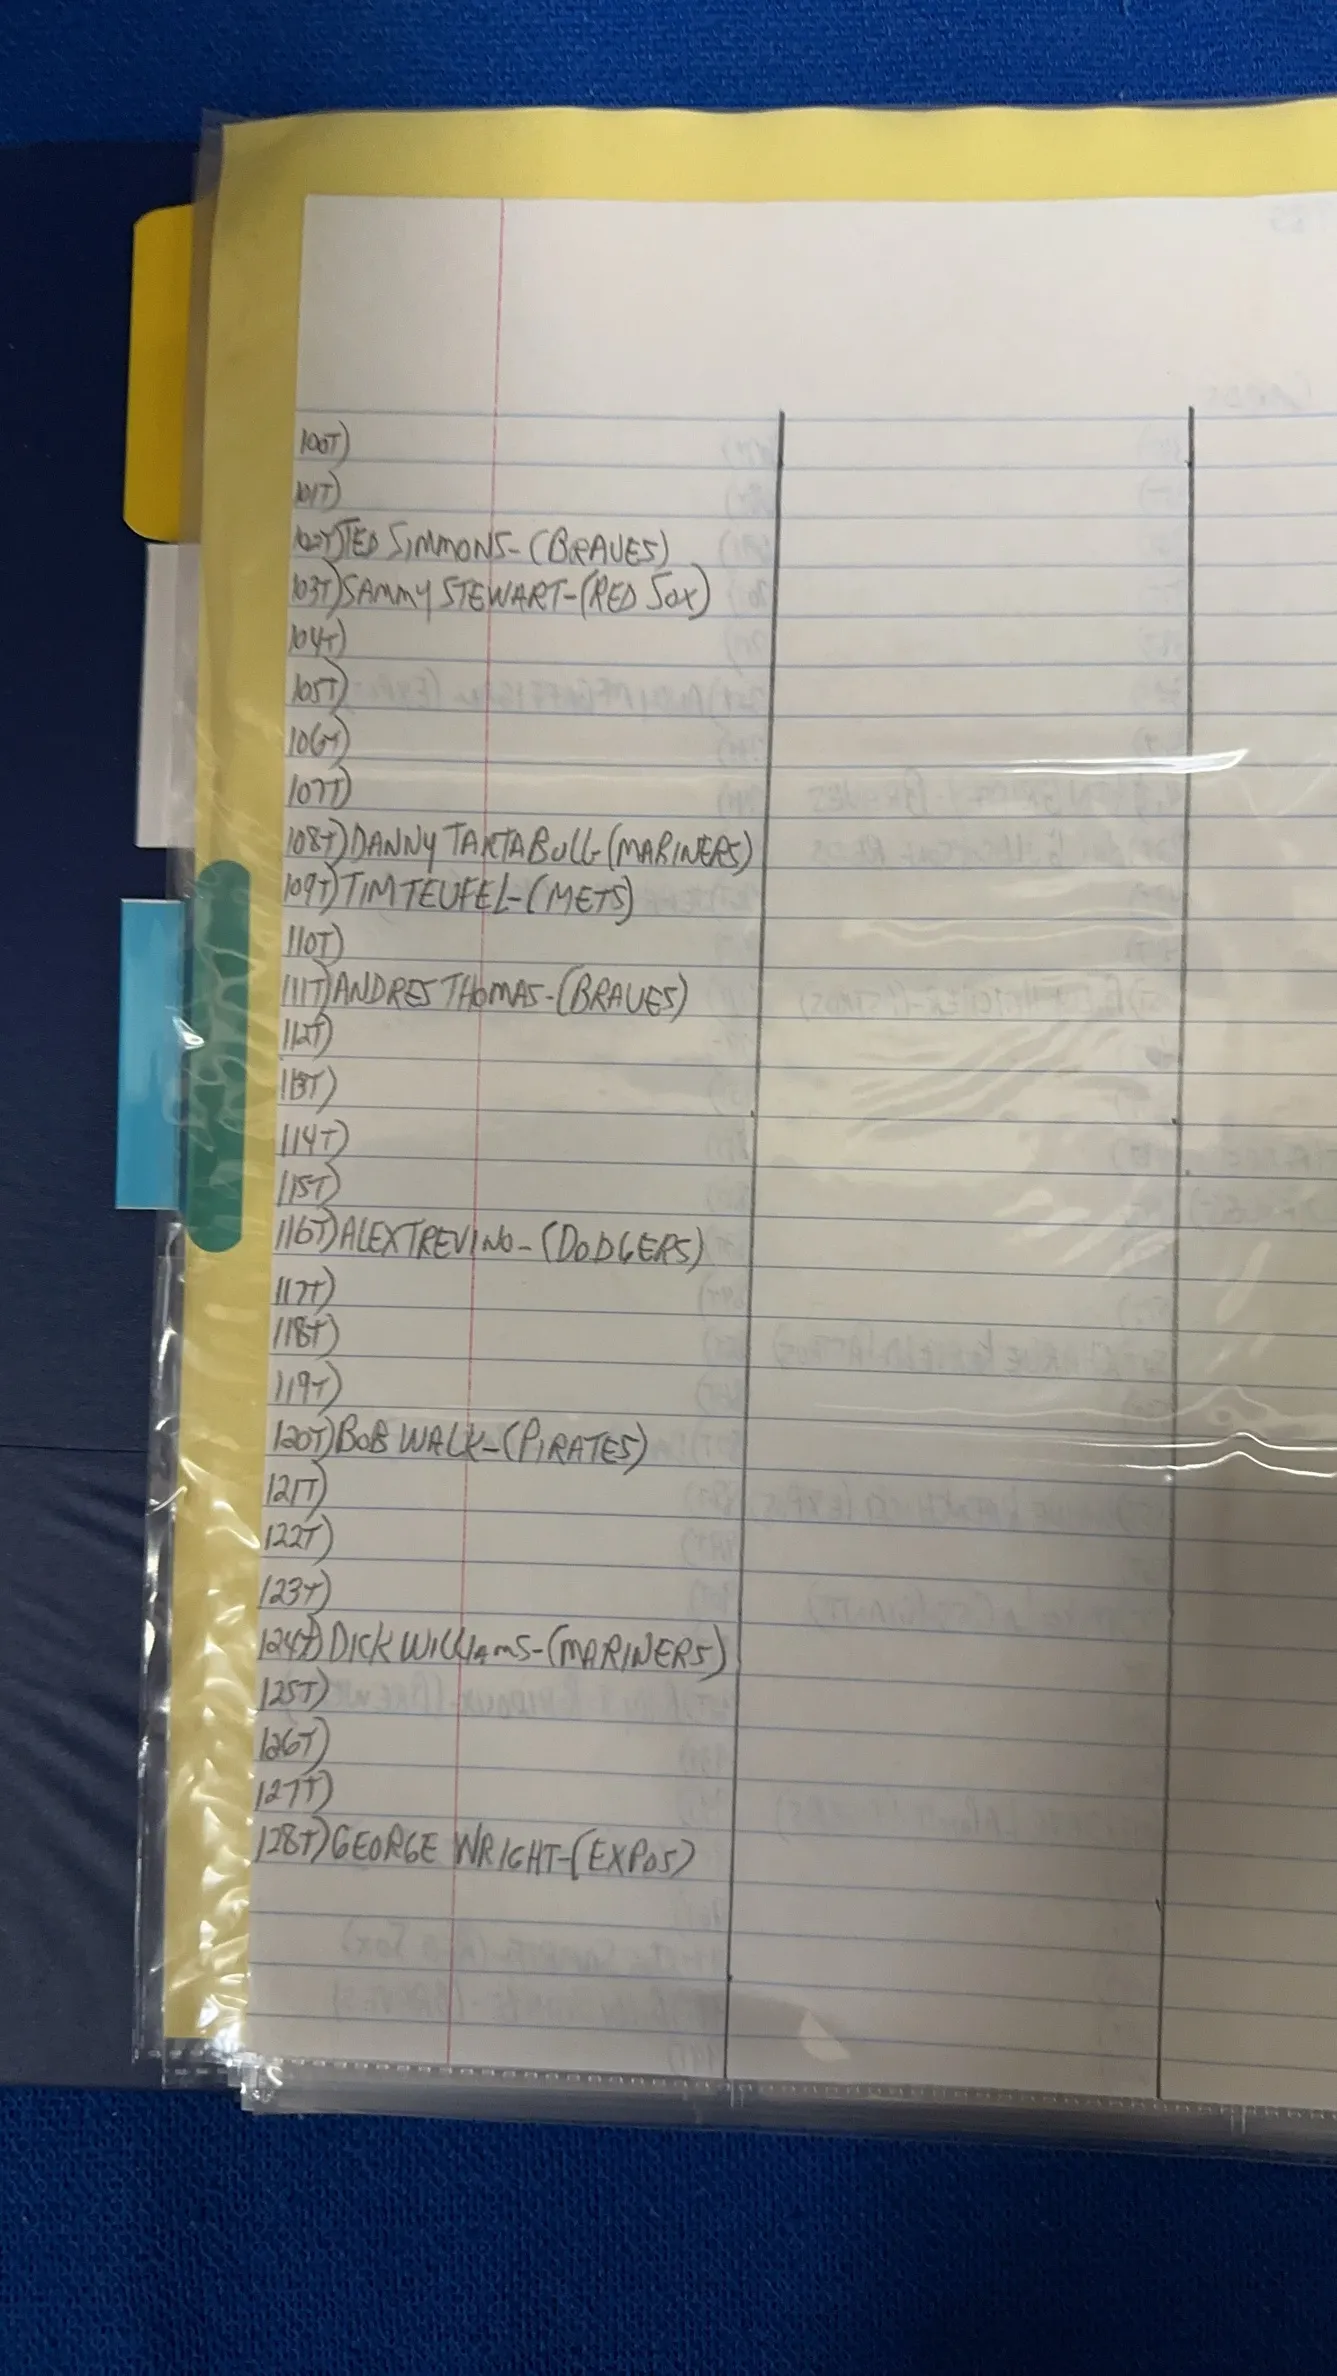 100T)
101T)
102T) TED SIMMONS-(BRAVES)
103T) SAMMY STEWART-(RED SOX)
104T)
105T)
106T)
107T)
108T) DANNY TARTABULL-(MARINERS)
109T) TIM TEUFEL-(METS)
110T)
111T) ANDRES THOMAS-(BRAVES)
112T)
113T)
114T)
115T)
116T) ALEX TREVINO-(DODGERS)
117T)
118T)
119T)
120T) BOB WALK-(PIRATES)
121T)
122T)
123T)
124T) DICK WILLIAMS-(MARINERS)
125T)
126T)
127T)
128T) GEORGE WRIGHT-(EXPOS)